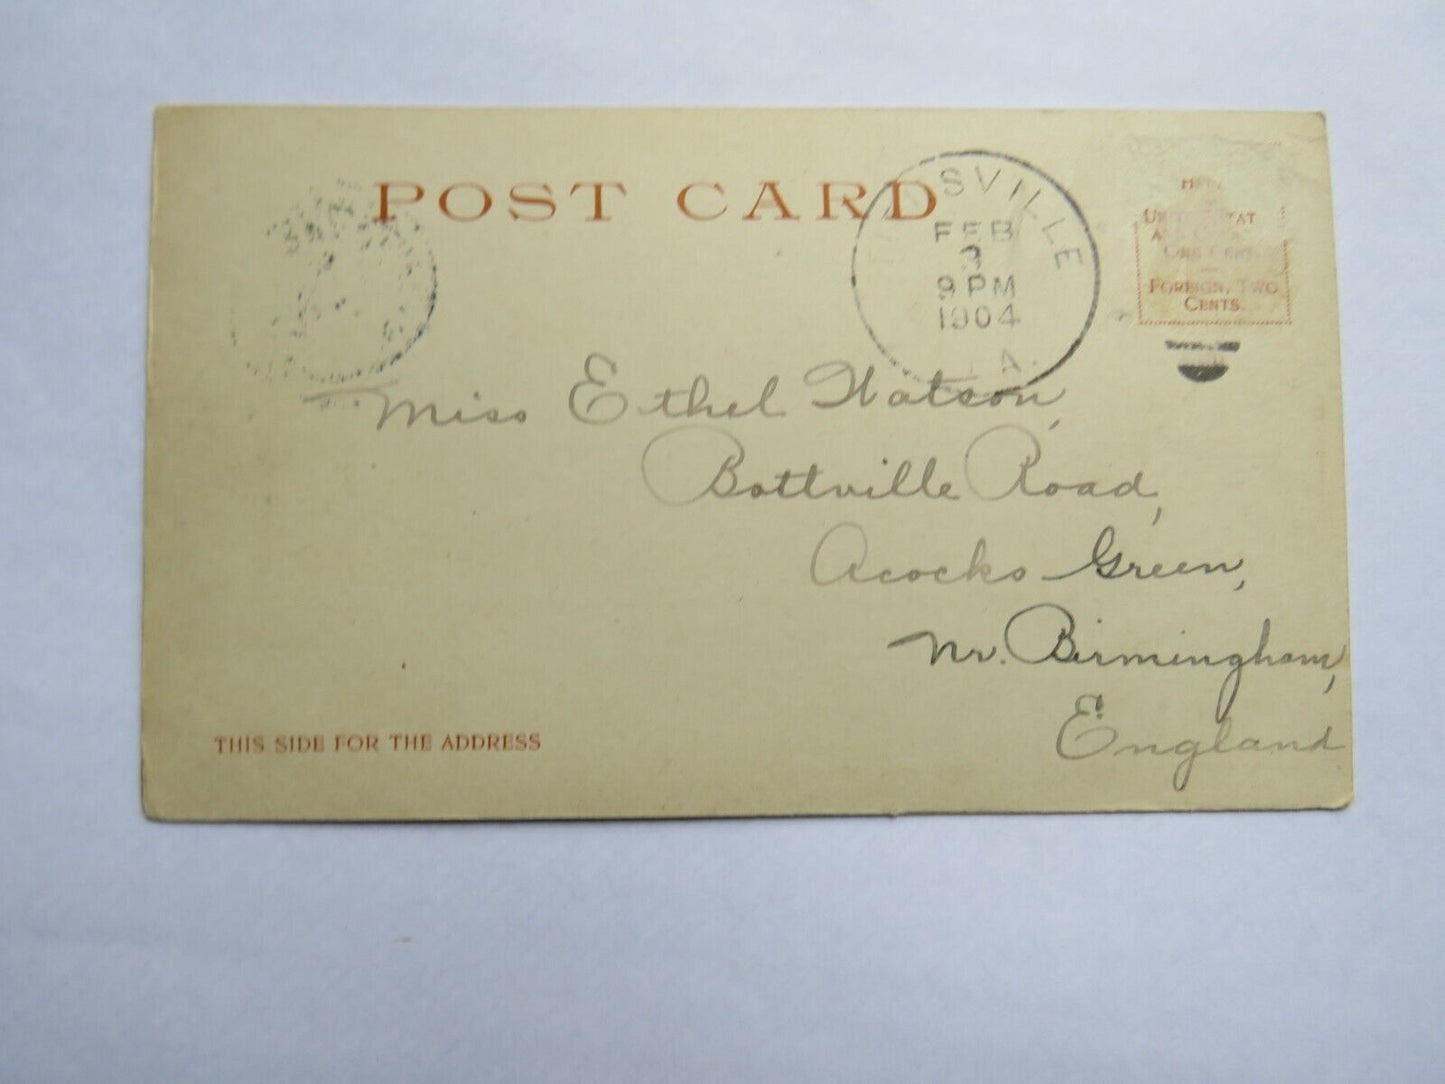 POST CARD
SVILLE
FEB
3
9 PM
1904
A.
FOREIGN, TWO
CENTS.
Miss Ethel Watson,
Bottville Road,
Acocks Green,
Nr. Birmingham,
England
THIS SIDE FOR THE ADDRESS